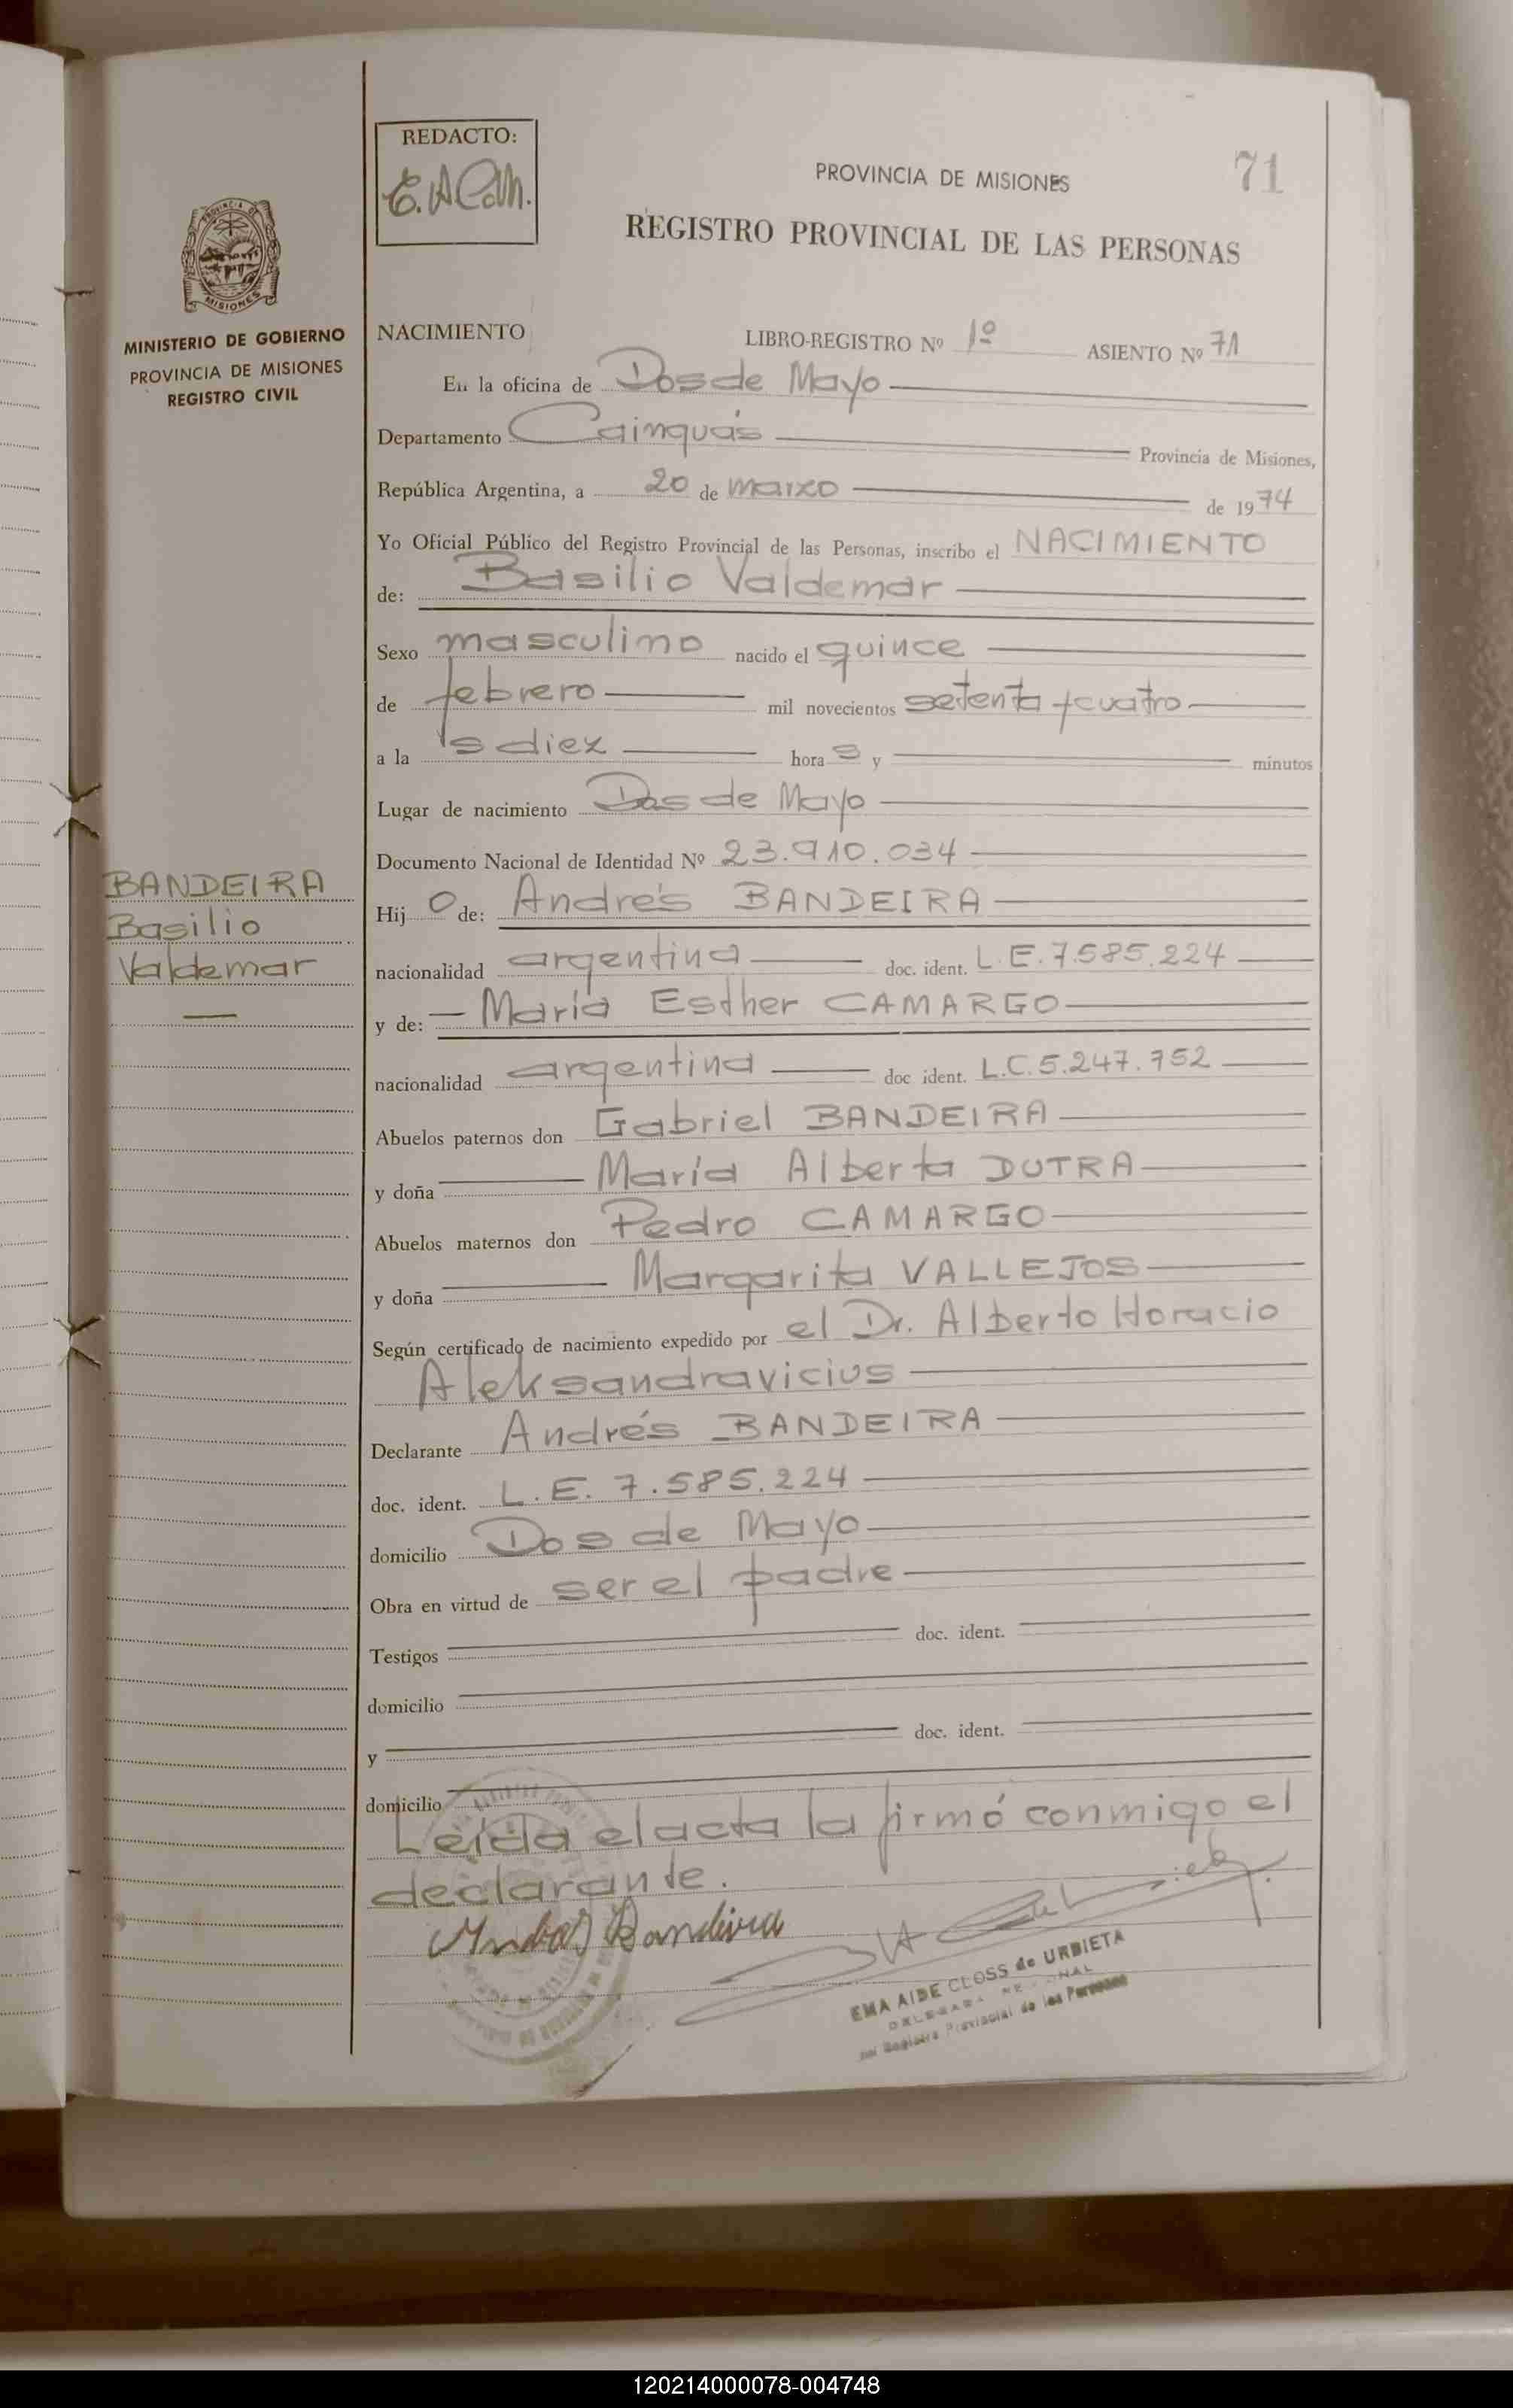 REDACTO:
E.ACdU.
PROVINCIA DE MISIONES
71
REGISTRO PROVINCIAL DE LAS PERSONAS
PROVINCIA DE
MISIONES
MINISTERIO DE GOBIERNO
PROVINCIA DE MISIONES
REGISTRO CIVIL
NACIMIENTO
LIBRO-REGISTRO Nº 1º ASIENTO Nº 71
En la oficina de Dos de Mayo
Departamento Cainguás Provincia de Misiones,
República Argentina, a 20 de marzo de 1974
Yo Oficial Público del Registro Provincial de las Personas, inscribo el NACIMIENTO
de: Basilio Valdemar
Sexo masculino nacido el quince
de febrero mil novecientos setenta y cuatro
a la s diez hora s y minutos
Lugar de nacimiento Dos de Mayo
Documento Nacional de Identidad Nº 23.910.034
BANDEIRA
Basilio
Valdemar
Hij o de: Andrés BANDEIRA
nacionalidad argentina doc. ident. L.E.7.585.224
y de: María Esther CAMARGO
nacionalidad argentina doc ident. L.C.5.247.752
Abuelos paternos don Gabriel BANDEIRA
y doña María Alberta DUTRA
Abuelos maternos don Pedro CAMARGO
y doña Margarita VALLEJOS
Según certificado de nacimiento expedido por el Dr. Alberto Horacio
Aleksandravicius
Declarante Andrés BANDEIRA
doc. ident. L.E. 7.585.224
domicilio Dos de Mayo
Obra en virtud de ser el padre
Testigos doc. ident.
domicilio
y doc. ident.
domicilio
Leída el acta la firmó conmigo el
declarante.
Andres Bandeira
EMA AIDE CLOSS de URBIETA
DELEGADA REGIONAL
Registro Provincial de las Personas
120214000078-004748